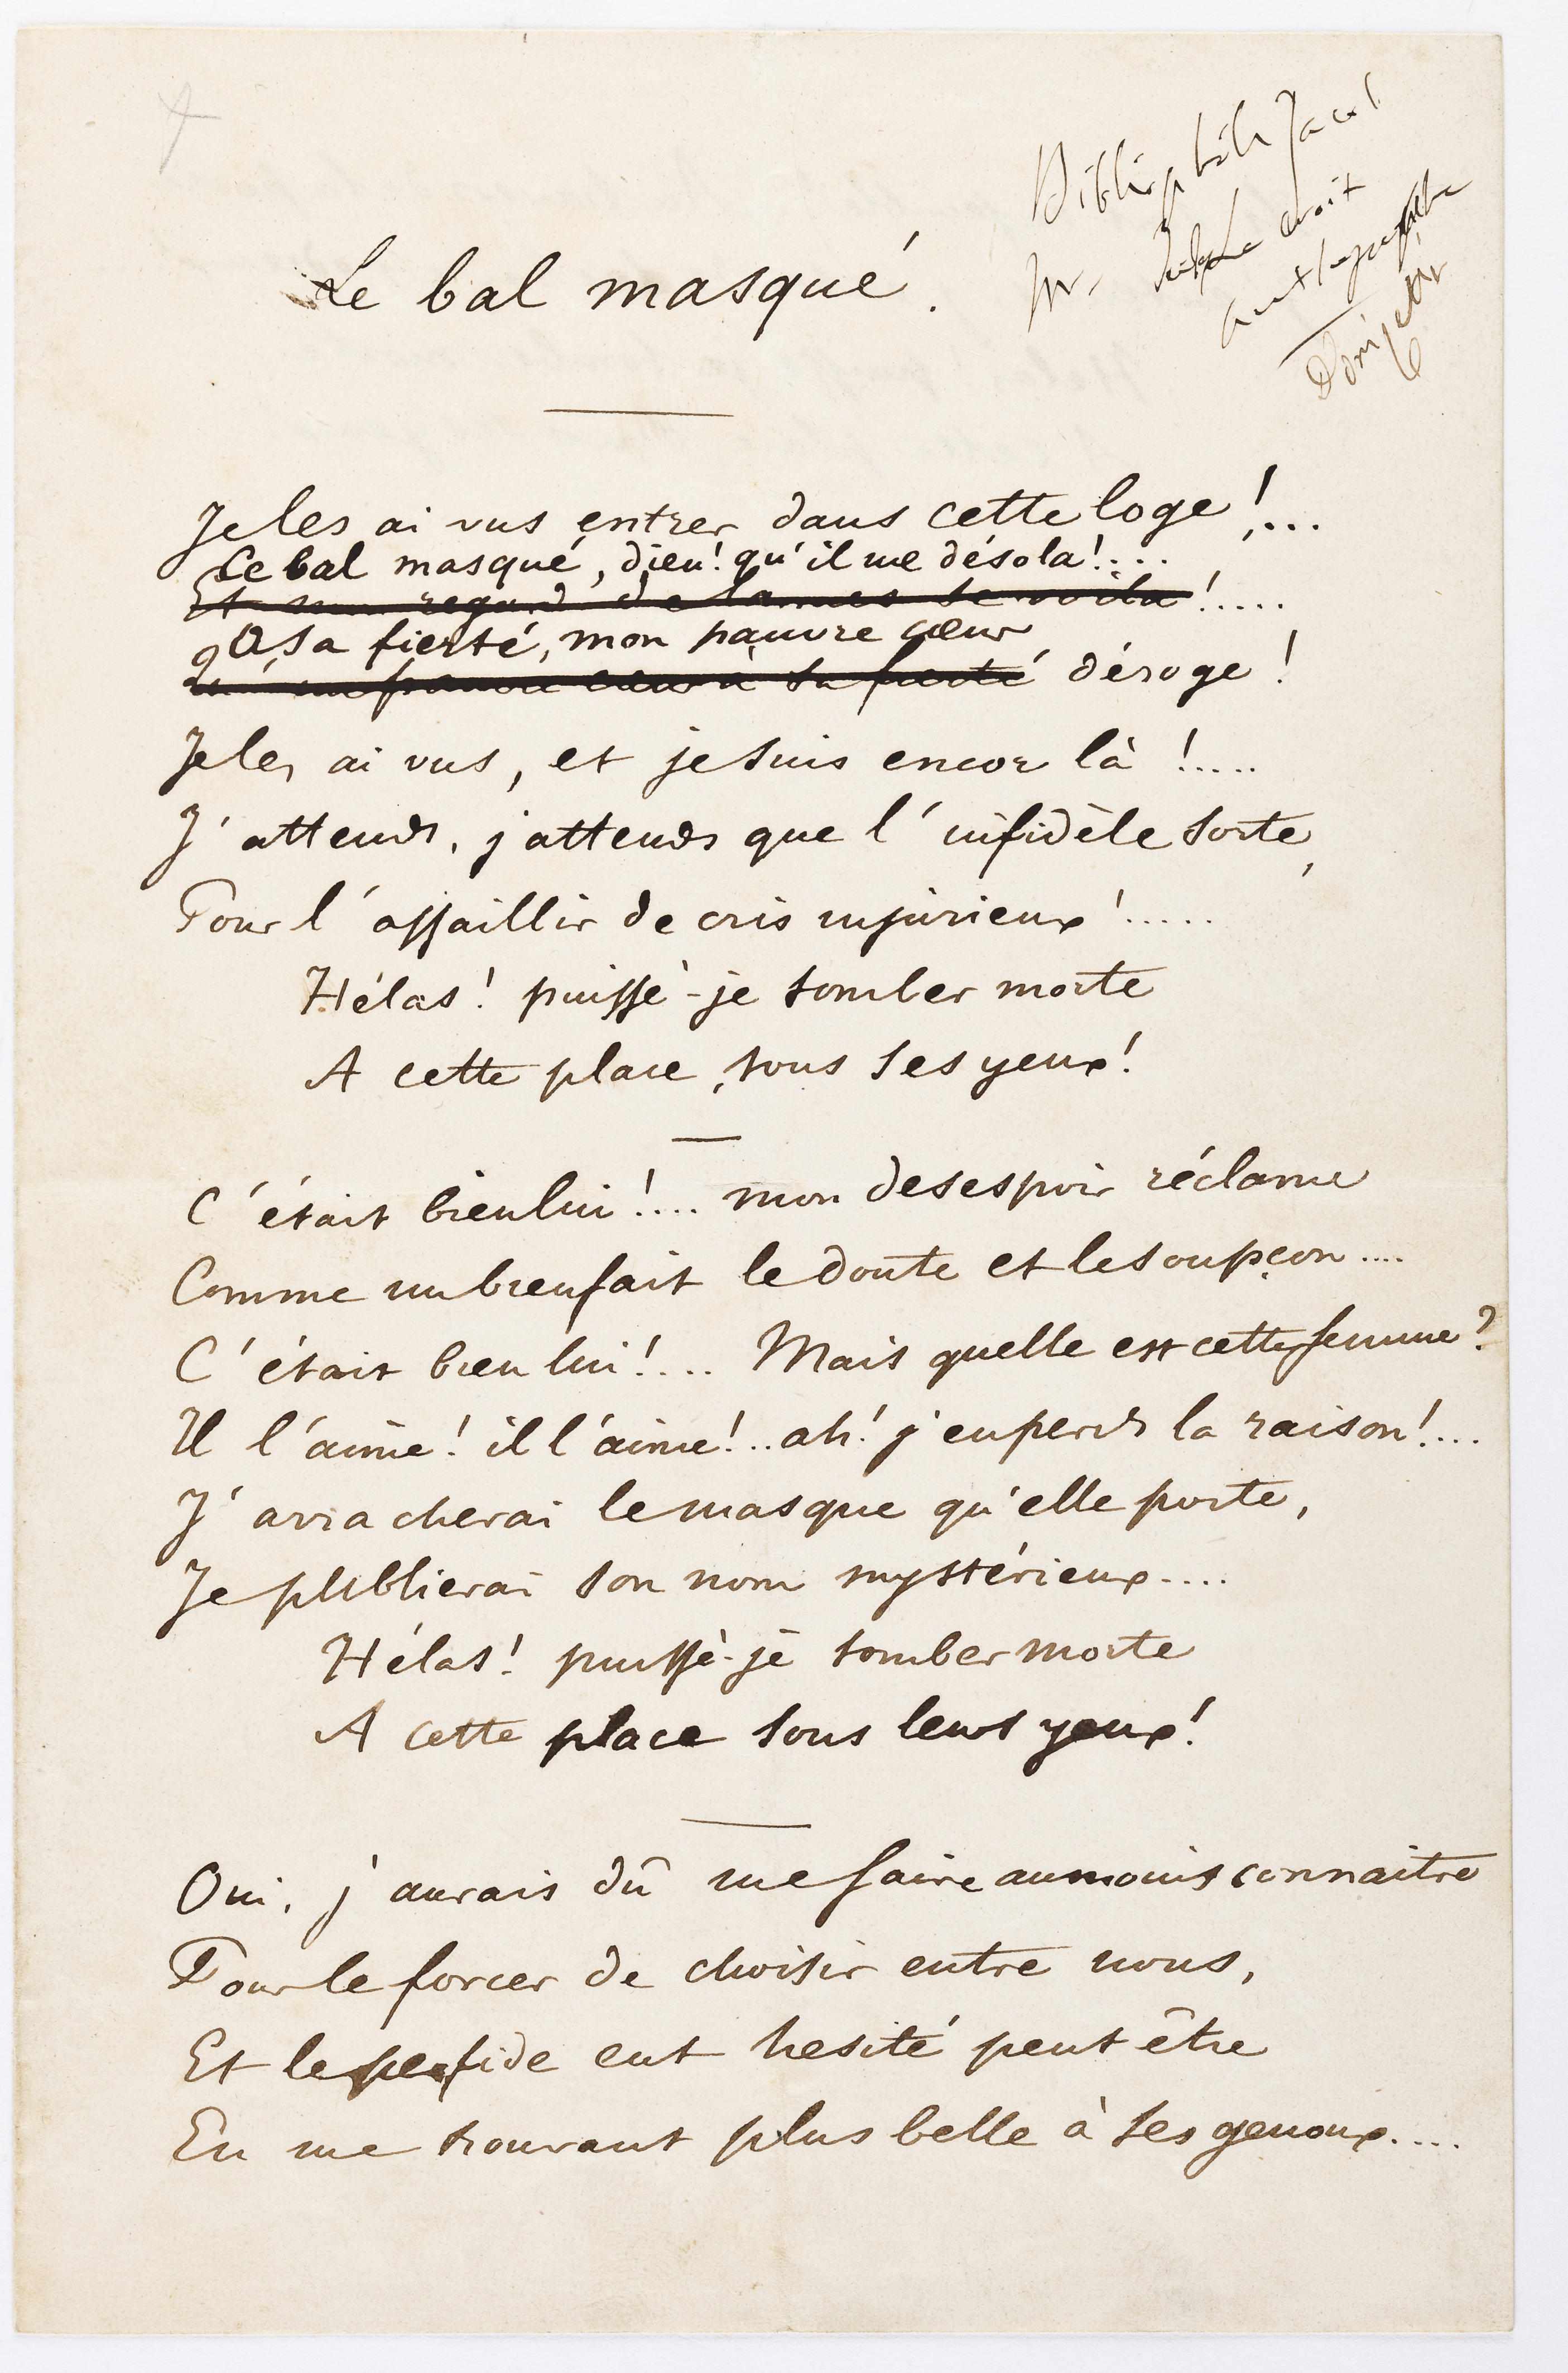 Bibliophile Jacob
Mr. croit
autographe
Donizetti
Le bal masqué.
Je les ai vus entrer dans cette loge!...
Le bal masqué, dieu! qu'il me désola!....
Et mon regard de larmes se voila!.....
Qu'à sa fierté, mon pauvre cœur
pauvre cœur à sa fierté déroge!
Je les ai vus, et je suis encor là!.....
J'attends, j'attends que l'infidèle sorte,
Pour l'assaillir de cris injurieux!.....
Hélas! puissè-je tomber morte
A cette place, sous ses yeux!
C'était bien lui!.... mon desespoir réclame
Comme un bienfait le doute et le soupçon....
C'était bien lui!.... Mais quelle est cette femme?
Il l'aime! il l'aime!..ah! j'en perds la raison!....
J'arracherai le masque qu'elle porte,
Je publierai son nom mystérieux....
Hélas! puissè-je tomber morte
A cette place sous leurs yeux!
Oui, j'aurais dû me faire au moins connaitre
Pour le forcer de choisir entre nous,
Et le perfide eut hesité peut être
En me trouvant plus belle à ses genoux....